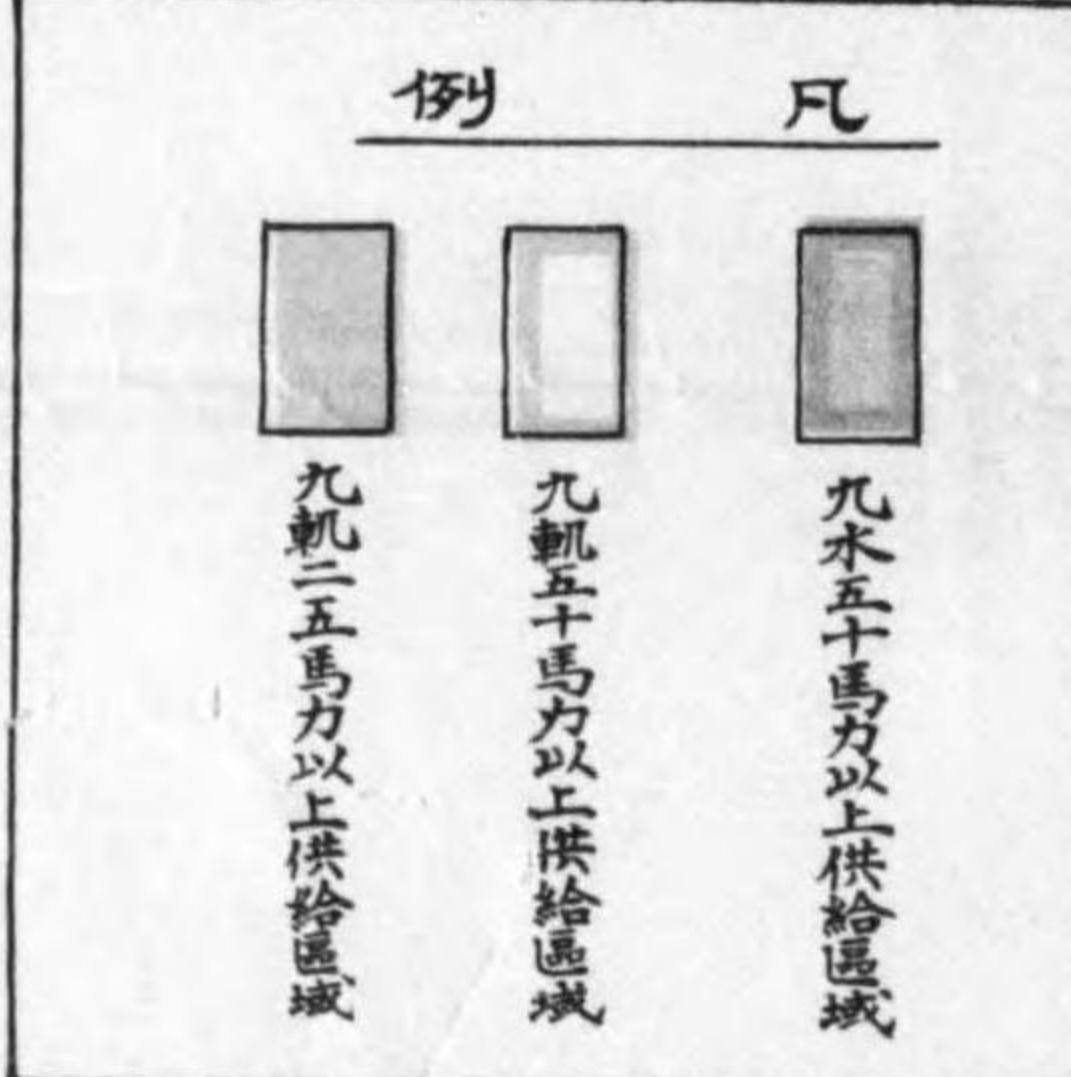 凡例
九水五十馬力以上供給區域
九軌五十馬力以上供給區域
九軌二五馬力以上供給區域